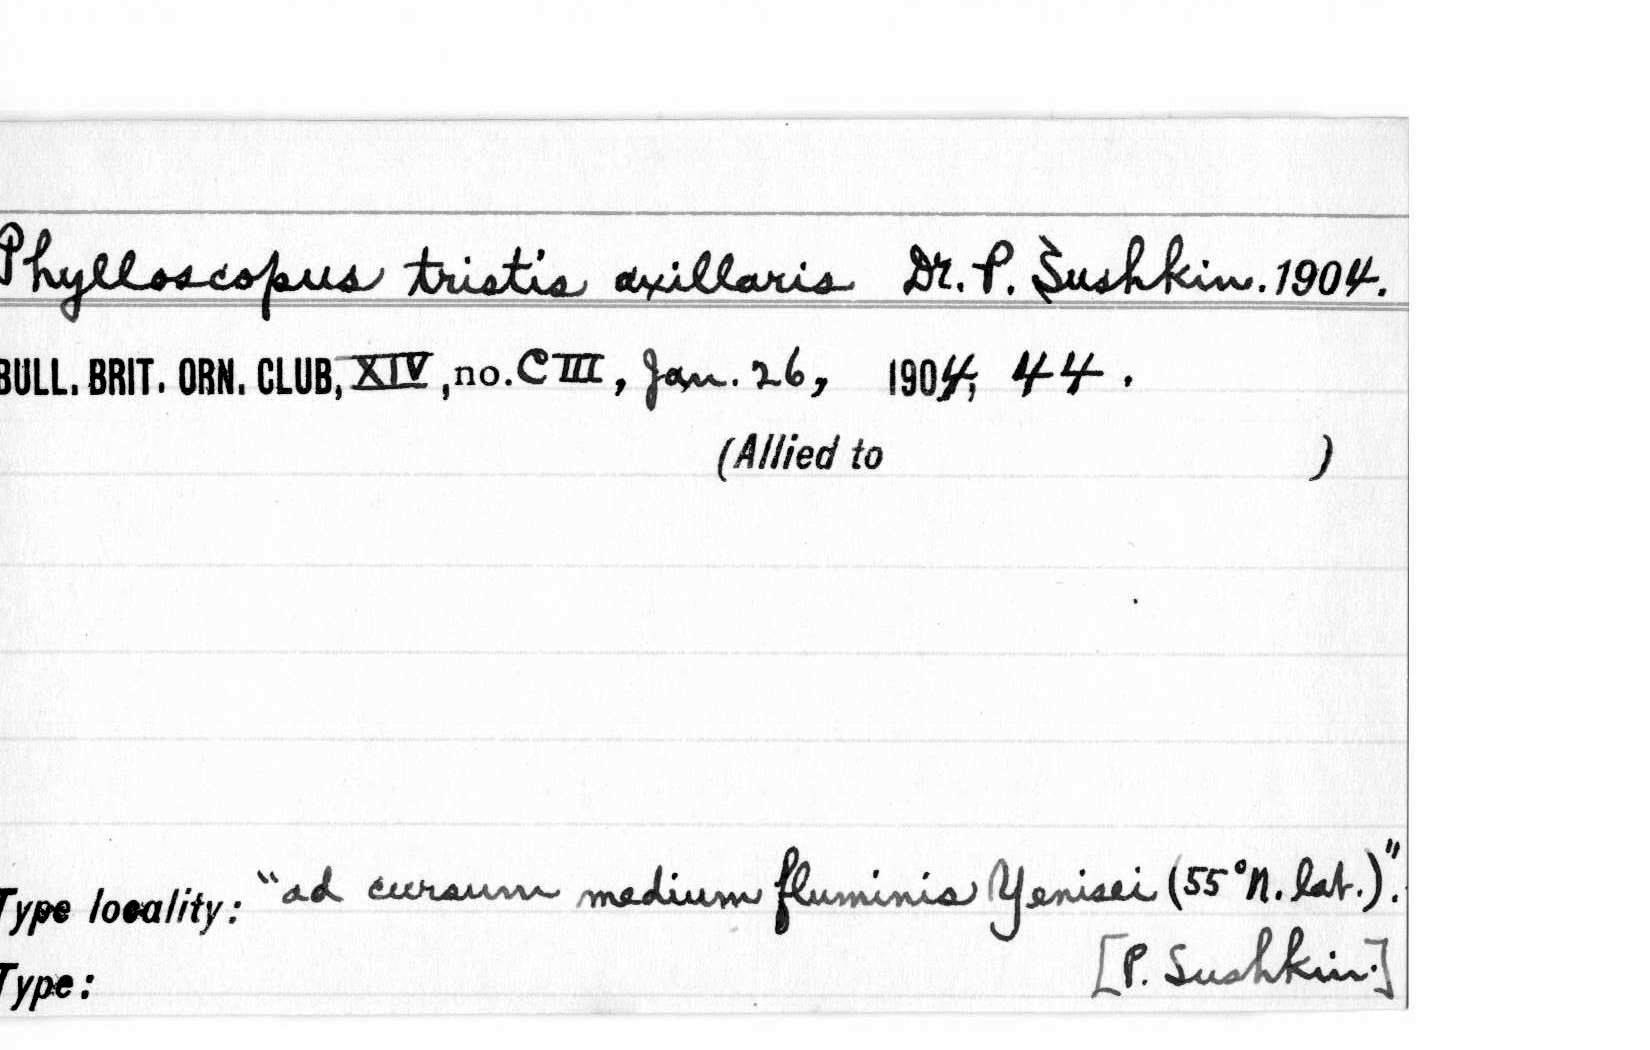 Phylloscopus tristis axillaris Dr. P. Sushkin. 1904.
BULL. BRIT. ORN. CLUB, XIV, no. CIII, Jan. 26, 1904, 44.
(Allied to )
Type locality: "ad cursum medium fluminis Yenisei (55° N. lat.)".
[P. Sushkin.]
Type: